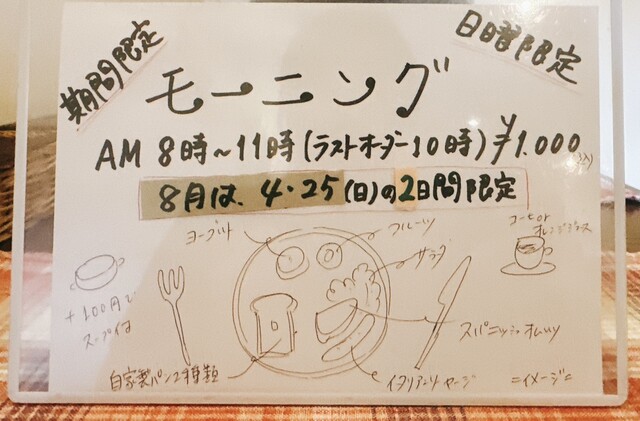 期間限定
日曜限定
モーニング
AM 8時~11時(ラストオーダー10時)¥1.000
8月は、4・25(日)の2日間限定
ヨーグルト
フルーツ
サラダ
コーヒor
オレンジジュース
+100円で
スープ付
スパニッシュオムレツ
自家製パン2種類
イタリアンソーセージ
=イメージ=